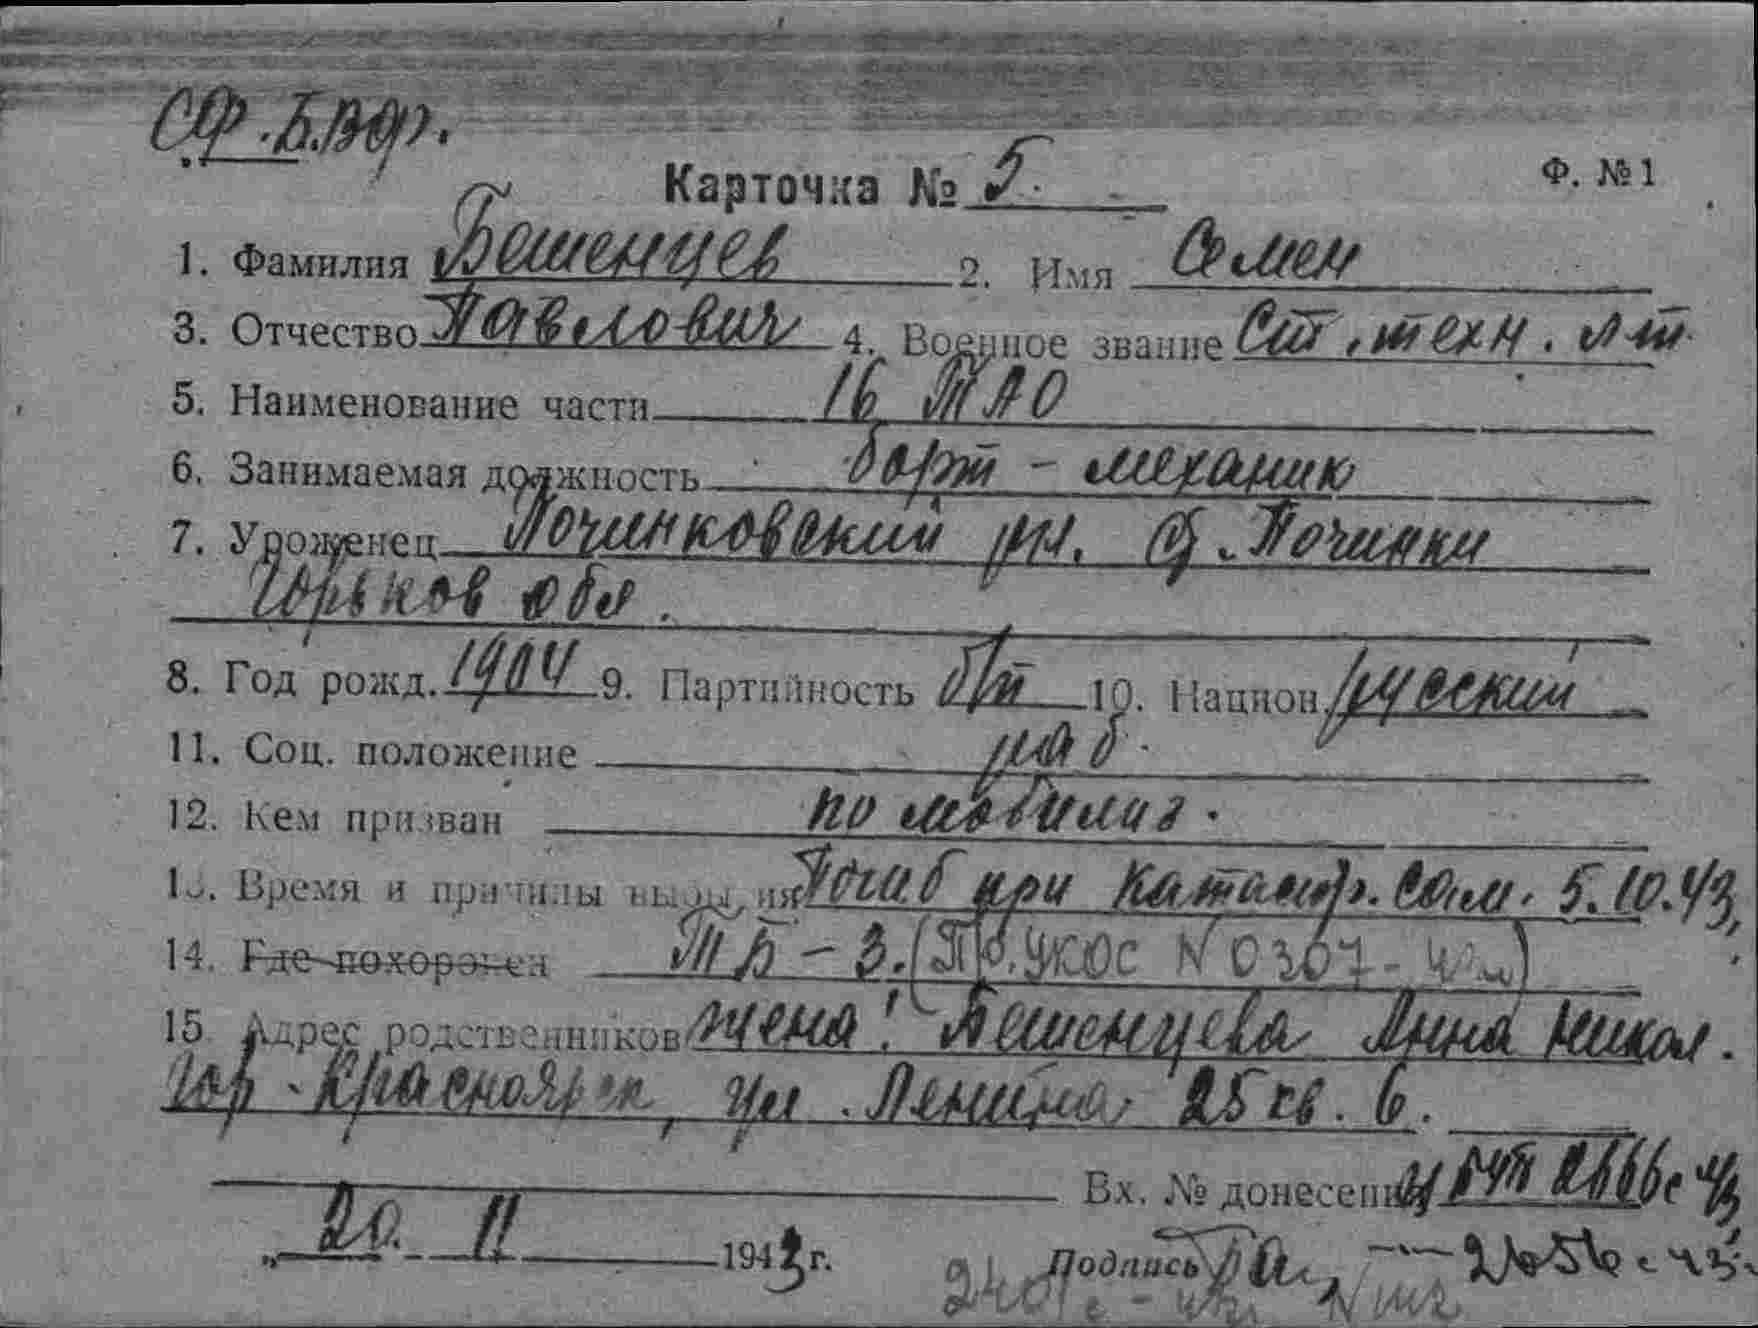 СФ. Б.Вф.
Карточка № 5. Ф. № 1
1. Фамилия Бешенцев 2. Имя Семен
3. Отчество Павлович 4. Военное звание Ст. техн. л-т
5. Наименование части 16 ТАО
6. Занимаемая должность борт-механик
7. Уроженец Починковский рн. с. Починки
Горьков обл.
8. Год рожд. 1904 9. Партийность б/п 10. Национ. русский
11. Соц. положение раб.
12. Кем призван по мобилиз.
13. Время и причины выбытия Погиб при катастр. сам. 5.10.43,
14. Где похоронен ТБ-3. (Пр. УКОС N 0307-
15. Адрес родственников жена: Бешенцева Анна Никол.
гор. Красноярск, ул. Ленина 25 кв. 6.
Вх. № донесения
„ 20. 11 1943 г. Подпись 2656с-43